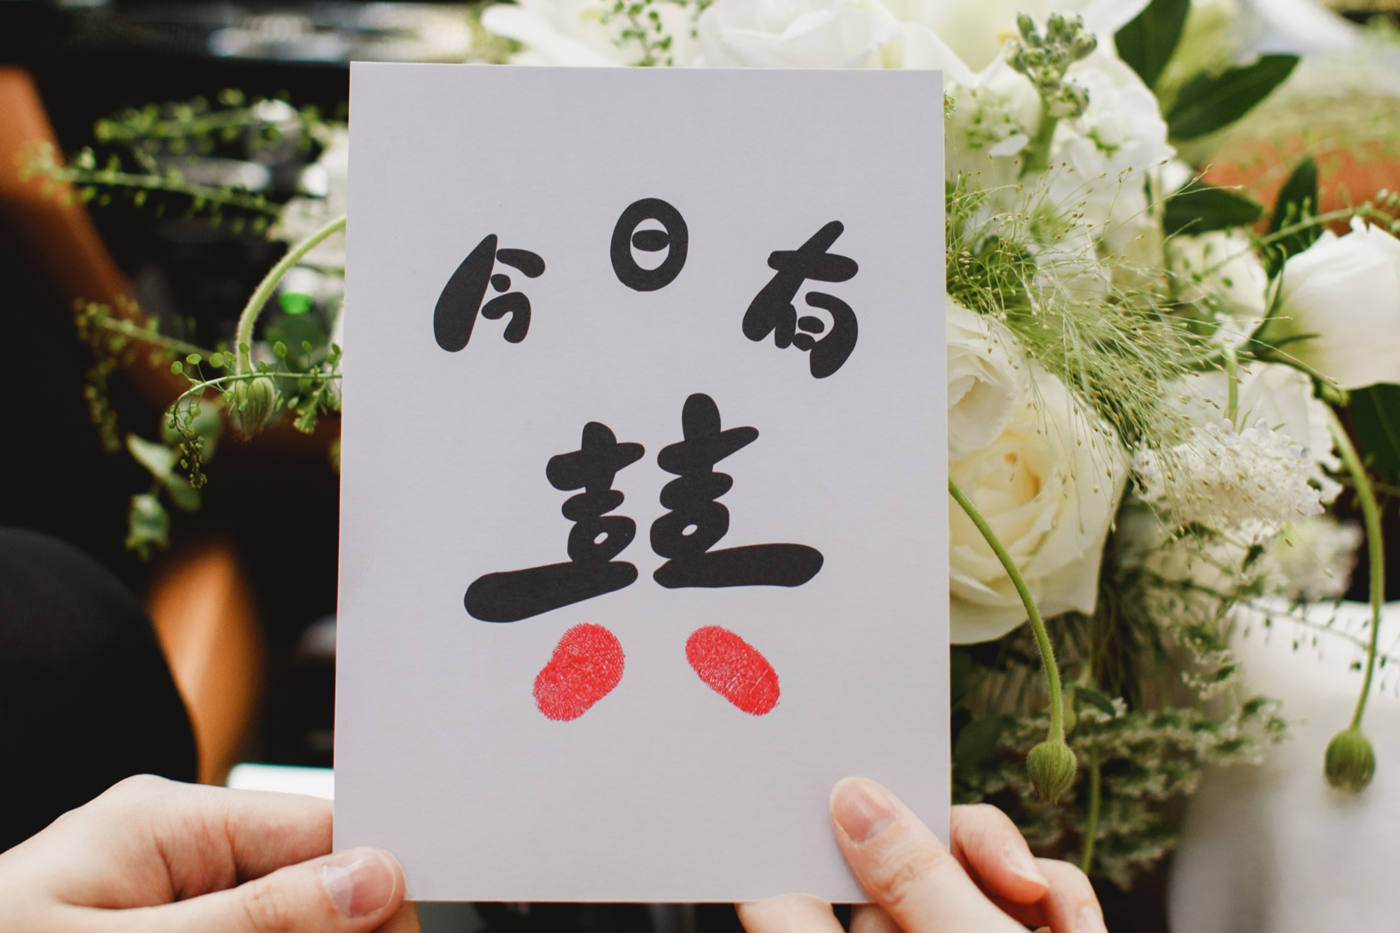 今日有
囍